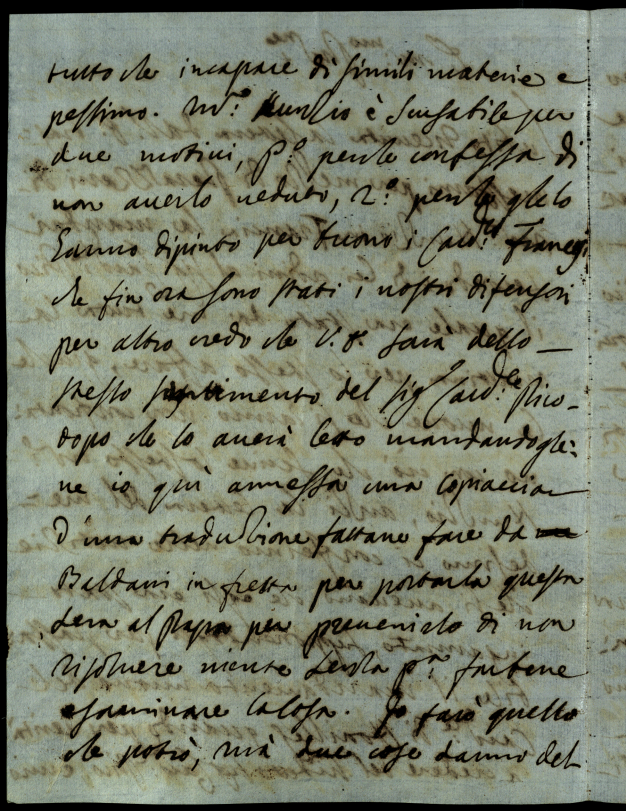 tutto che incapace di simili materie e
pessimo. M.r Aurelio è scusabile per
due motivi, p.o perche confessa di
non averlo veduto, 2.o perche glelo
hanno dipinto per buono i Card.li Francesi
che fin ora sono stati i nostri difensori
per altro credo che V. S. sarà dello
stesso sentimento del sig.r Card.le Pico-
dopo che lo averà letto mandandogle-
ne io qui annessa una copiaccia
d'una traduzione fattane fare da
Baldani in fretta per portarla questa
sera al Papa per prevenirlo di non
risolvere niente senza p.a farbene
esaminare la cosa. Io farò quello
che potrò, mà due cose danno del